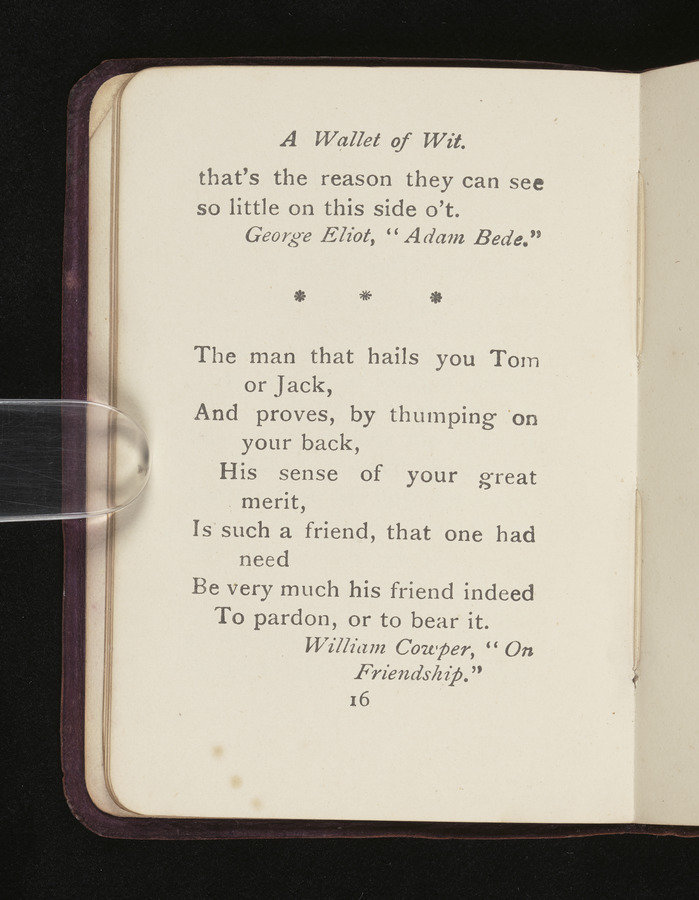 A Wallet of Wit.
that's the reason they can see
so little on this side o't.
George Eliot, “ Adam Bede.”
* * *
The man that hails you Tom
or Jack,
And proves, by thumping on
your back,
His sense of your great
merit,
Is such a friend, that one had
need
Be very much his friend indeed
To pardon, or to bear it.
William Cowper, “ On
Friendship.”
16